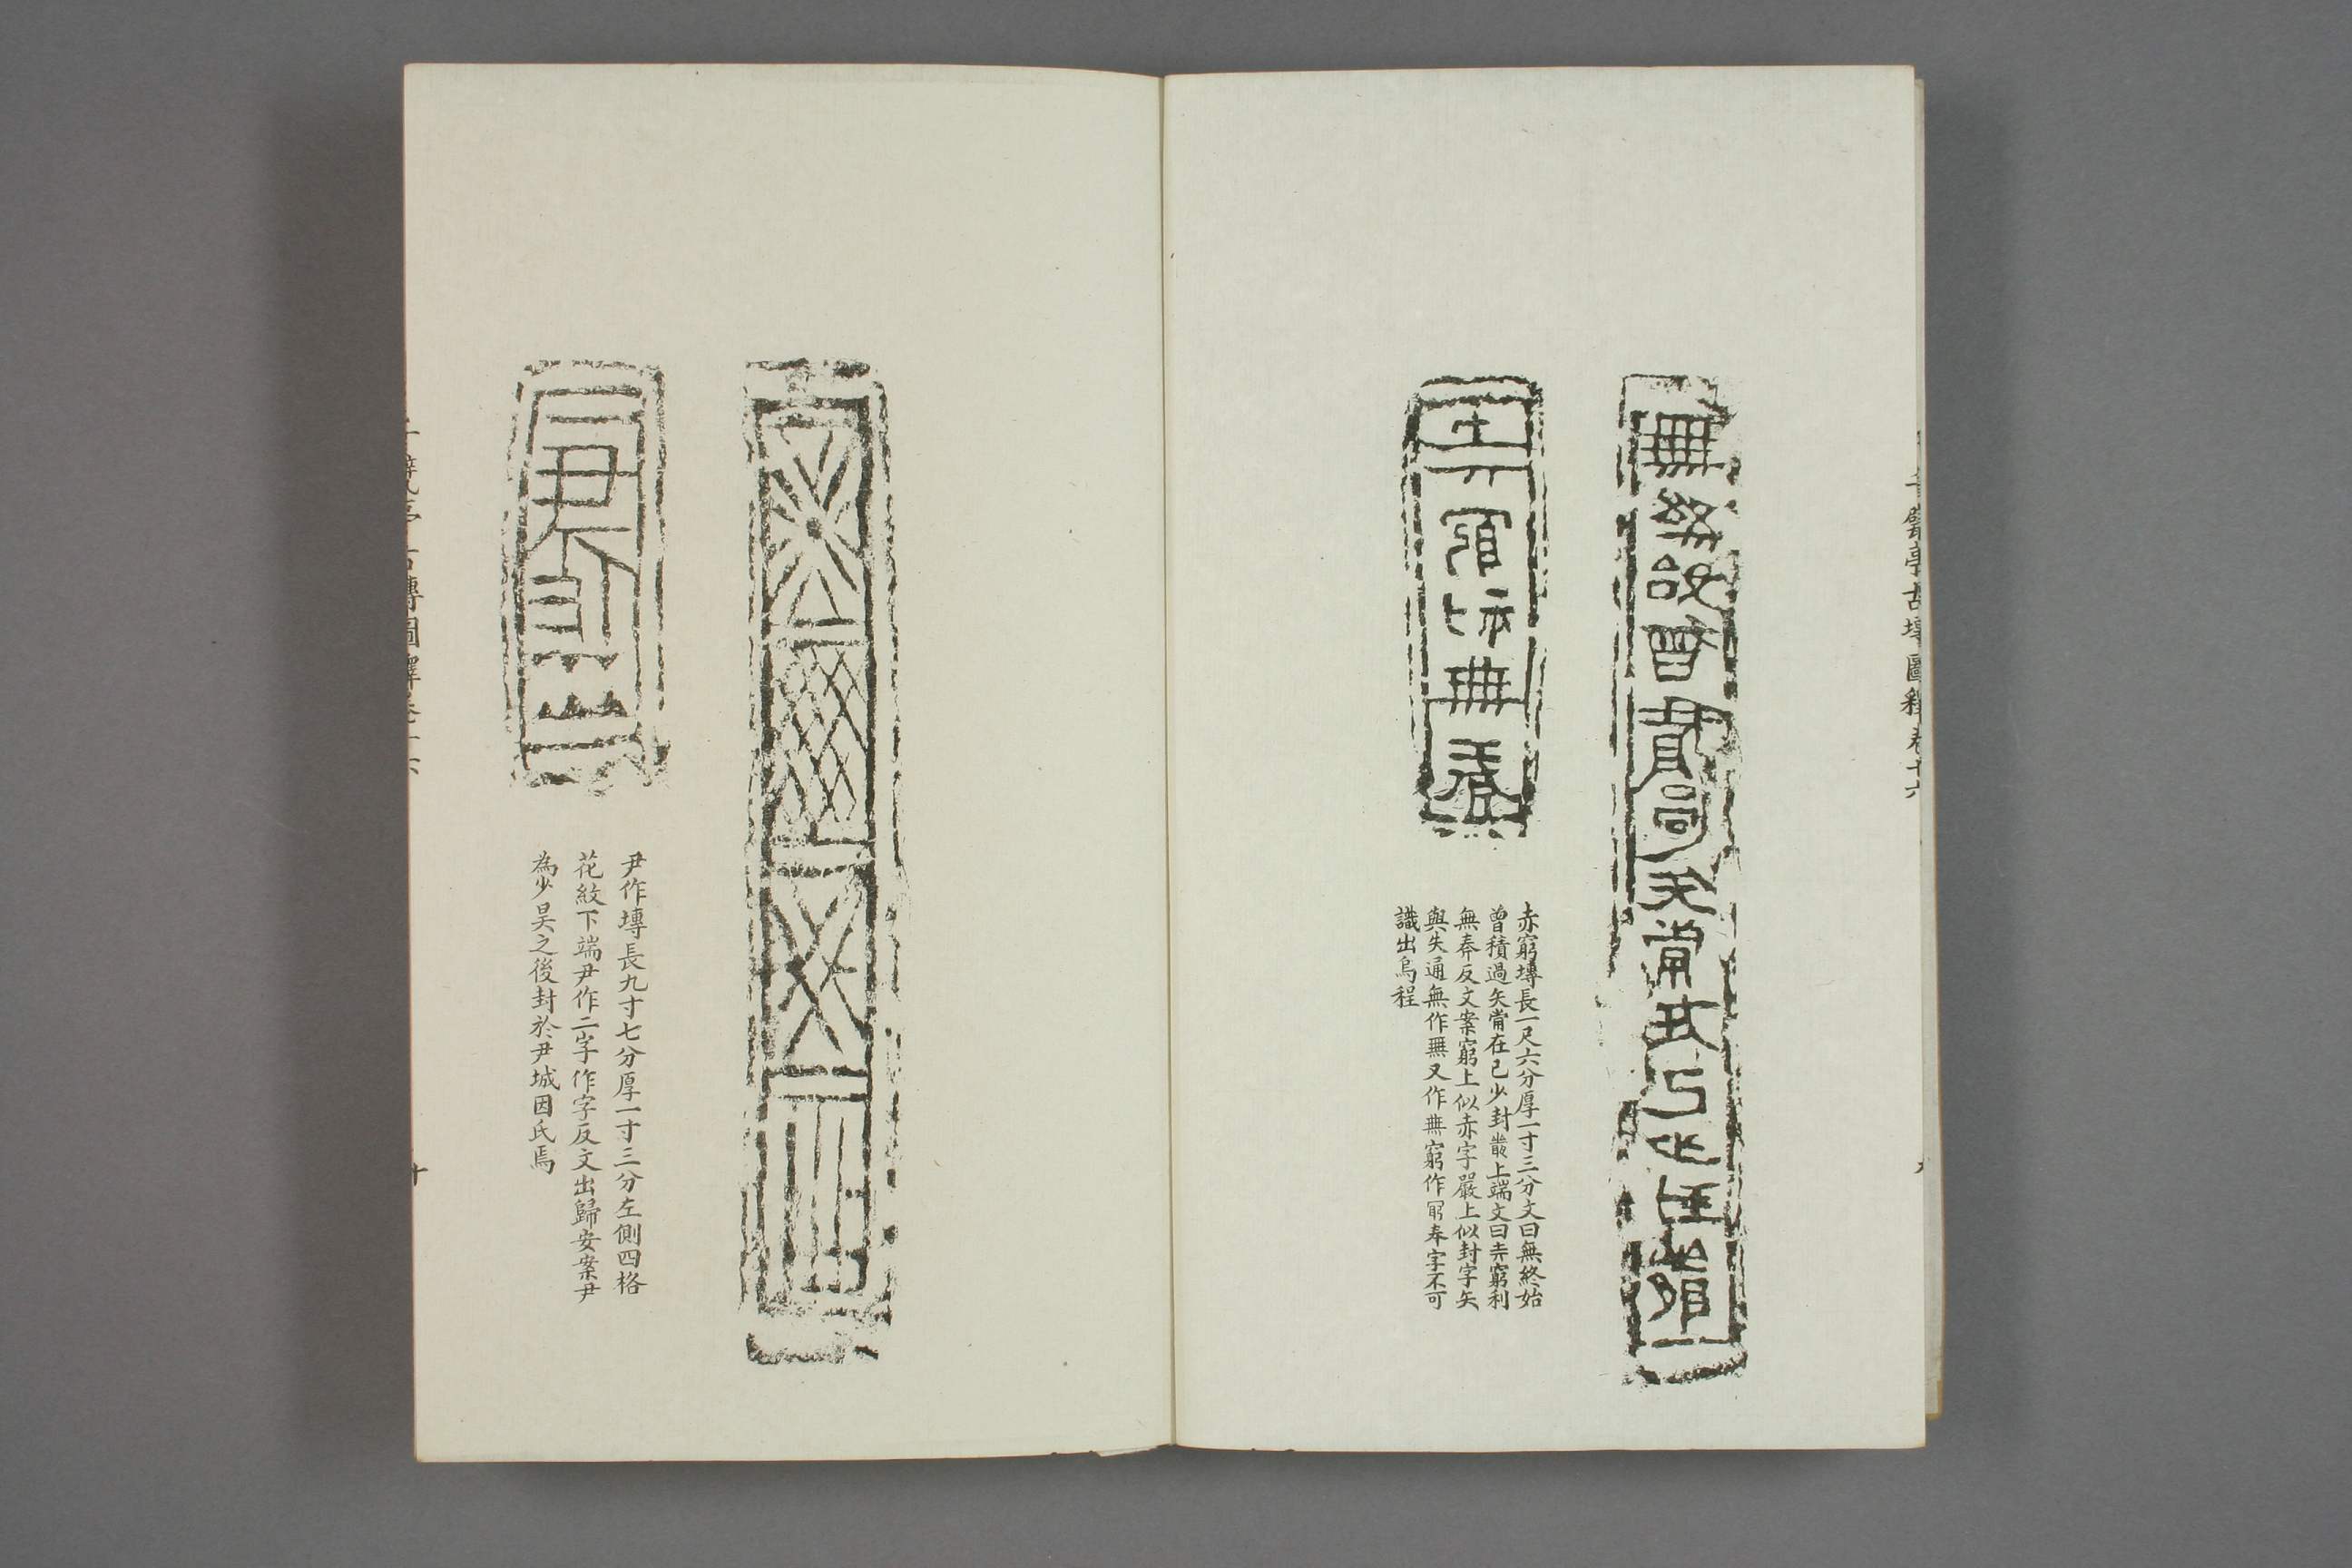 千甓亭古塼圖釋卷十六
赤窮塼長一尺六分厚一寸三分文曰無終始
曾積過矢常在己少封叢上端文曰赤窮利
無奉反文案窮上似赤字嚴上似封字矢
與失通無作無又作無窮作窮奉字不可
識出烏程
尹作塼長九寸七分厚一寸三分左側四格
花紋下端尹作二字作字反文出歸安案尹
為少昊之後封於尹城因氏焉
千甓亭古塼圖釋卷十六
十